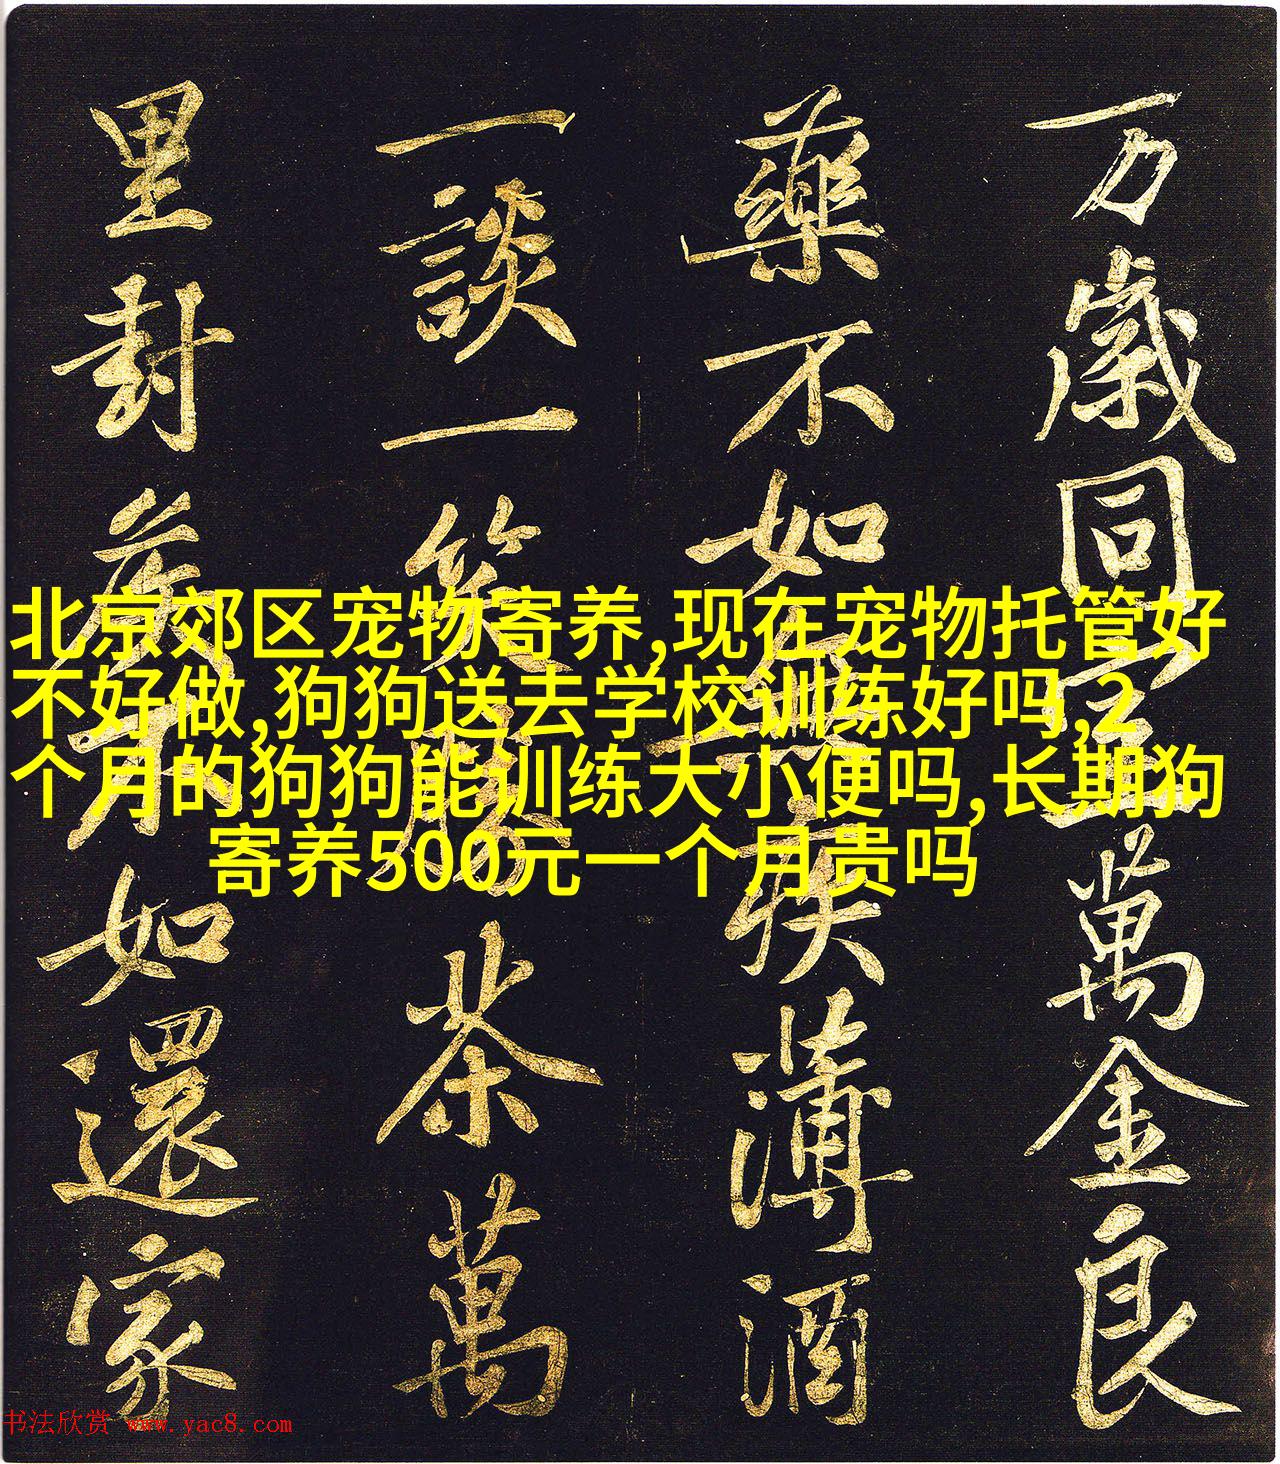 万歲同萬金良
藥不如無疾薄酒
一談一笑勝茶萬
里封侯不如還家
北京郊区宠物寄养,现在宠物托管好
不好做,狗狗送去学校训练好吗,2
个月的狗狗能训练大小便吗,长期狗
寄养500元一个月贵吗
书法欣赏 www.yac8.com